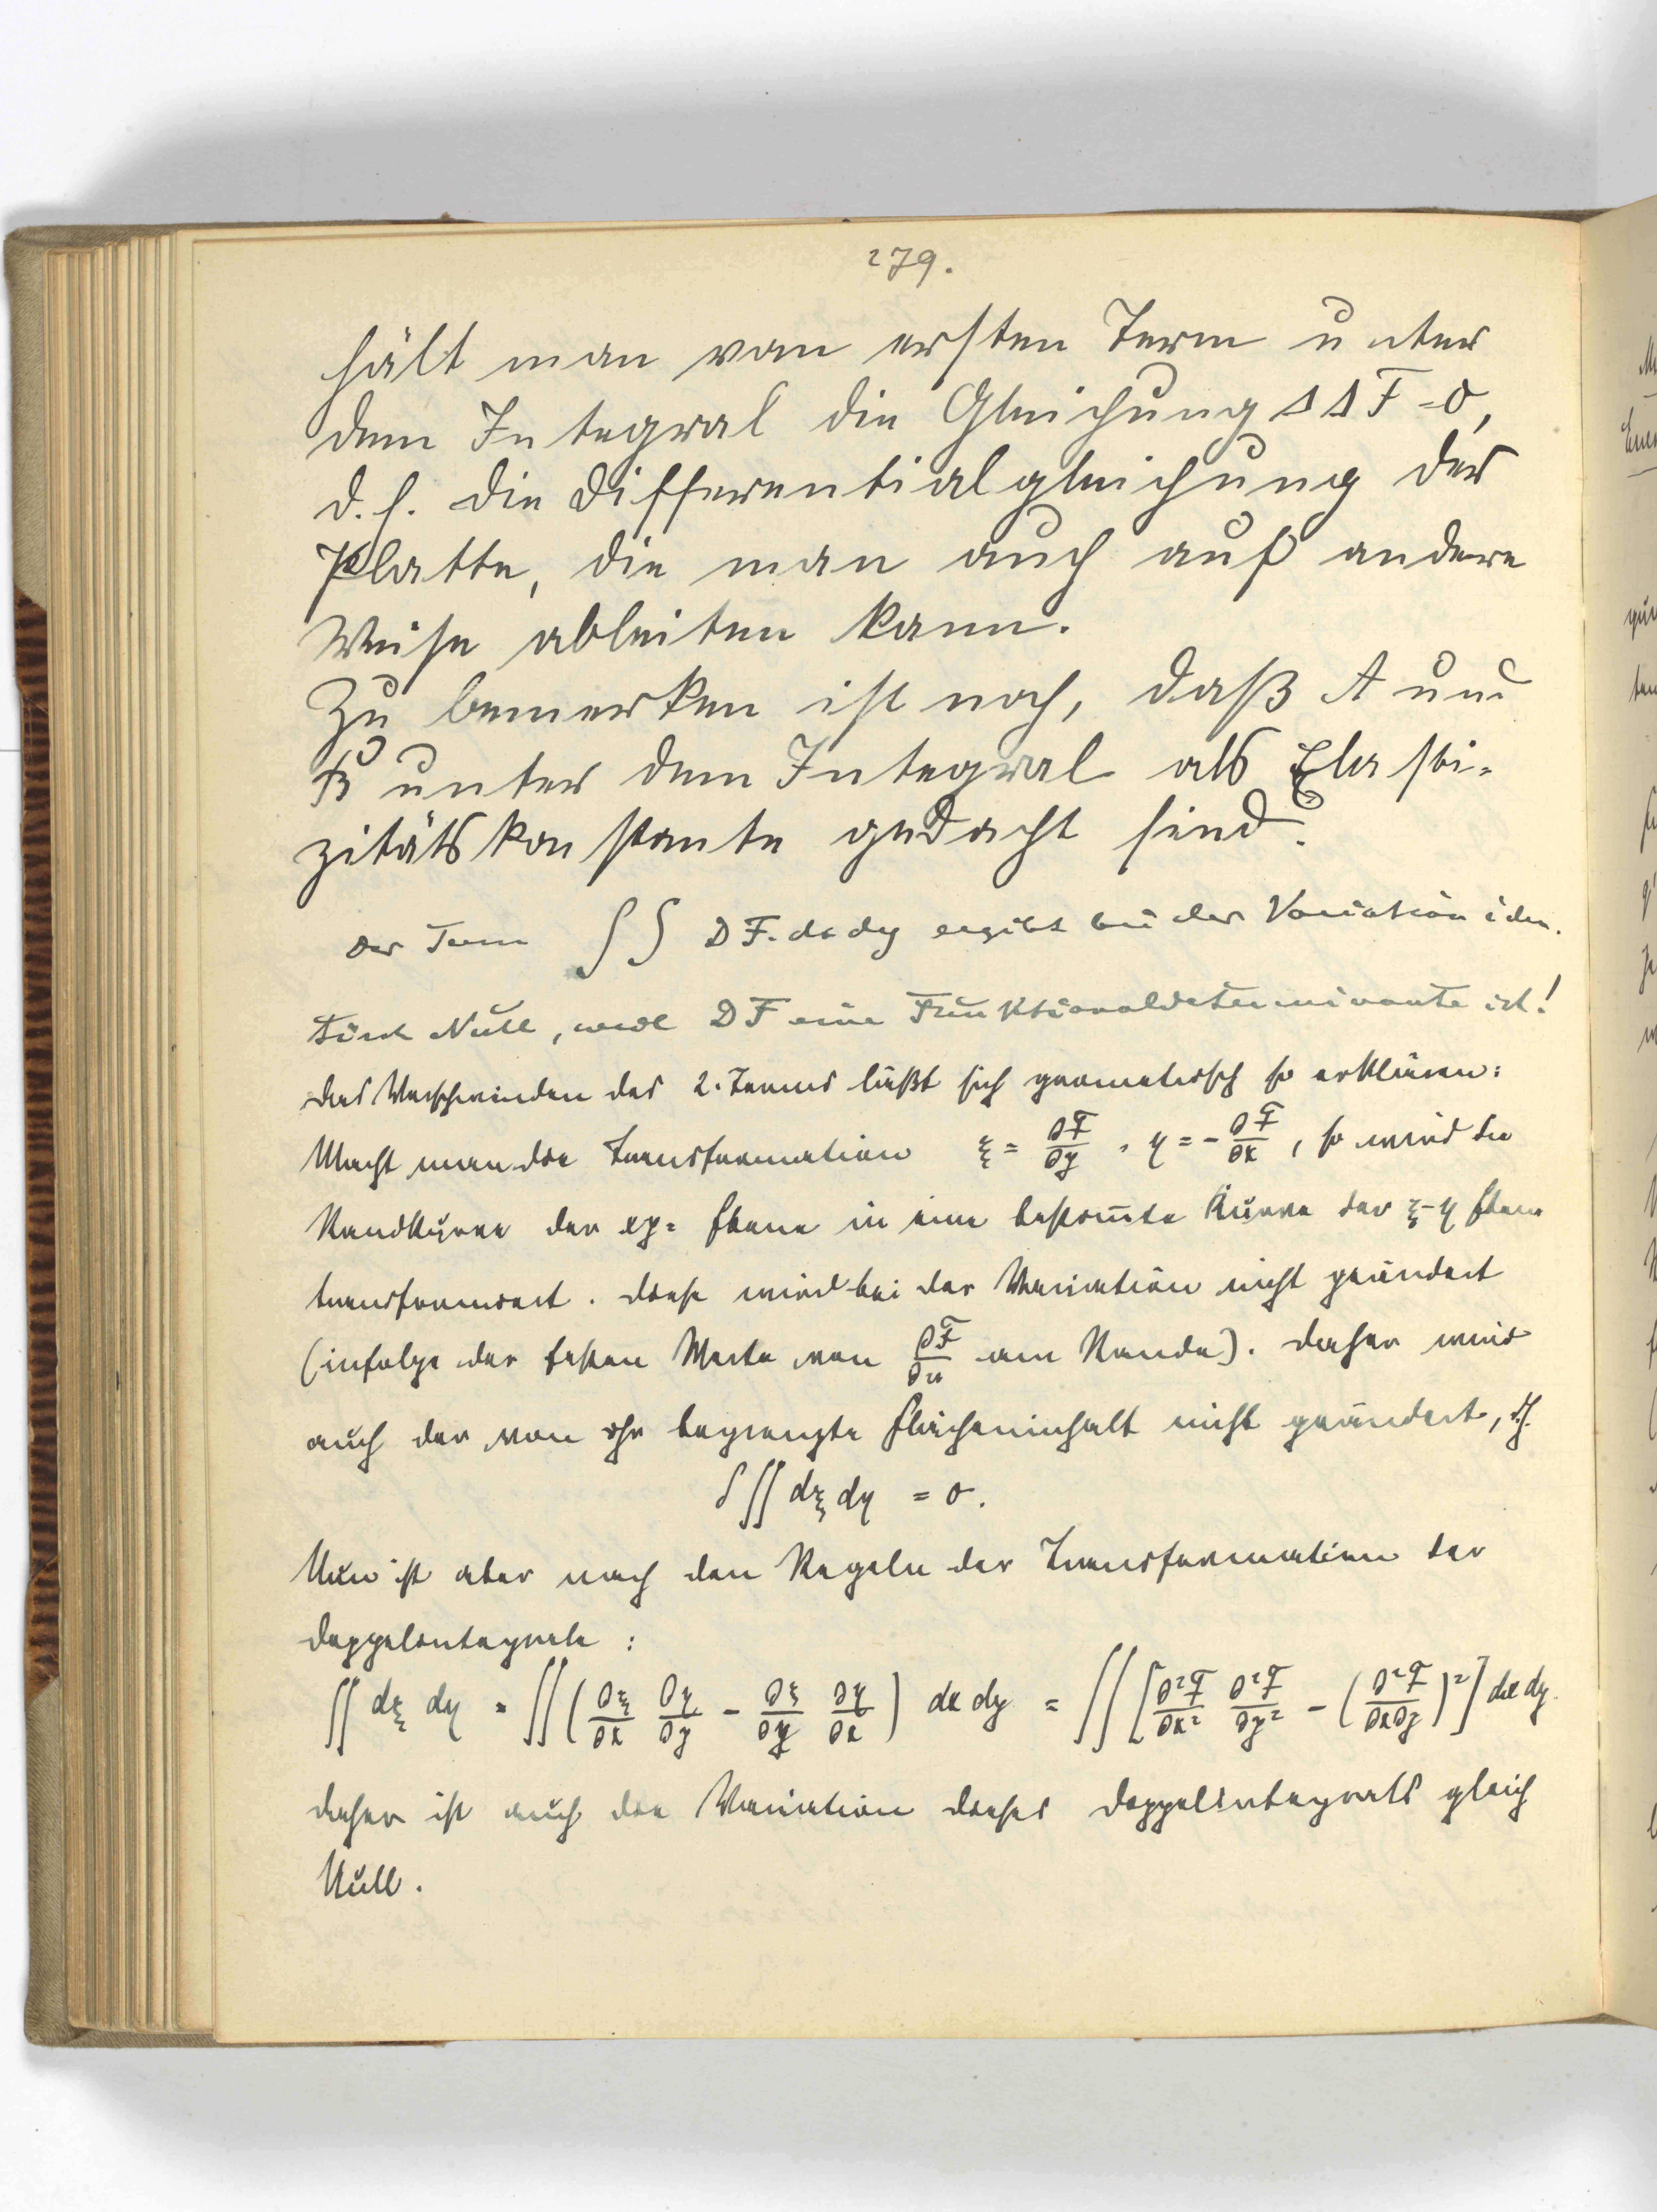 279.
hält man vom ersten Term unter
dem Integral die Gleichung ΔΔF=0,
d.h. die Differentialgleichung der
Platte, die man auch auf andere
Weise ableiten kann.
Zu bemerken ist noch, daß A und
B unter dem Integral als Elasti-
zitätskonstante gedacht sind.
Der Term ∫∫ DF. dx dy ergibt bei der Variation iden.
tisch Null, weil DF eine Funktionaldeterminante ist!
Das Verschwinden des 2. Terms läßt sich geometrisch so erklären:
Macht man die Transformation ξ = ∂F/∂y, η = -∂F/∂x, so wird die
Randkurve der xy= Ebene in eine bestim̅te Kurve der ξ-η Ebene
transformiert. Diese wird bei der Variation nicht geändert
(infolge der festen Werte von ∂F/∂n am Rande). Daher wird
auch der von ihr begrenzte Flächeninhalt nicht geändert, d.h.
δ∫∫ dξ dη = 0.
Nun ist aber nach den Regeln der Transformation der
Doppelintegrale :
∫∫ dξ dη = ∫∫ (∂ξ/∂x ∂η/∂y - ∂ξ/∂y ∂η/∂x) dx dy = ∫∫ [∂²F/∂x² ∂²F/∂y² - (∂²F/∂x∂y)²] dx dy.
daher ist auch die Variation dieses Doppelintegrals gleich
Null.